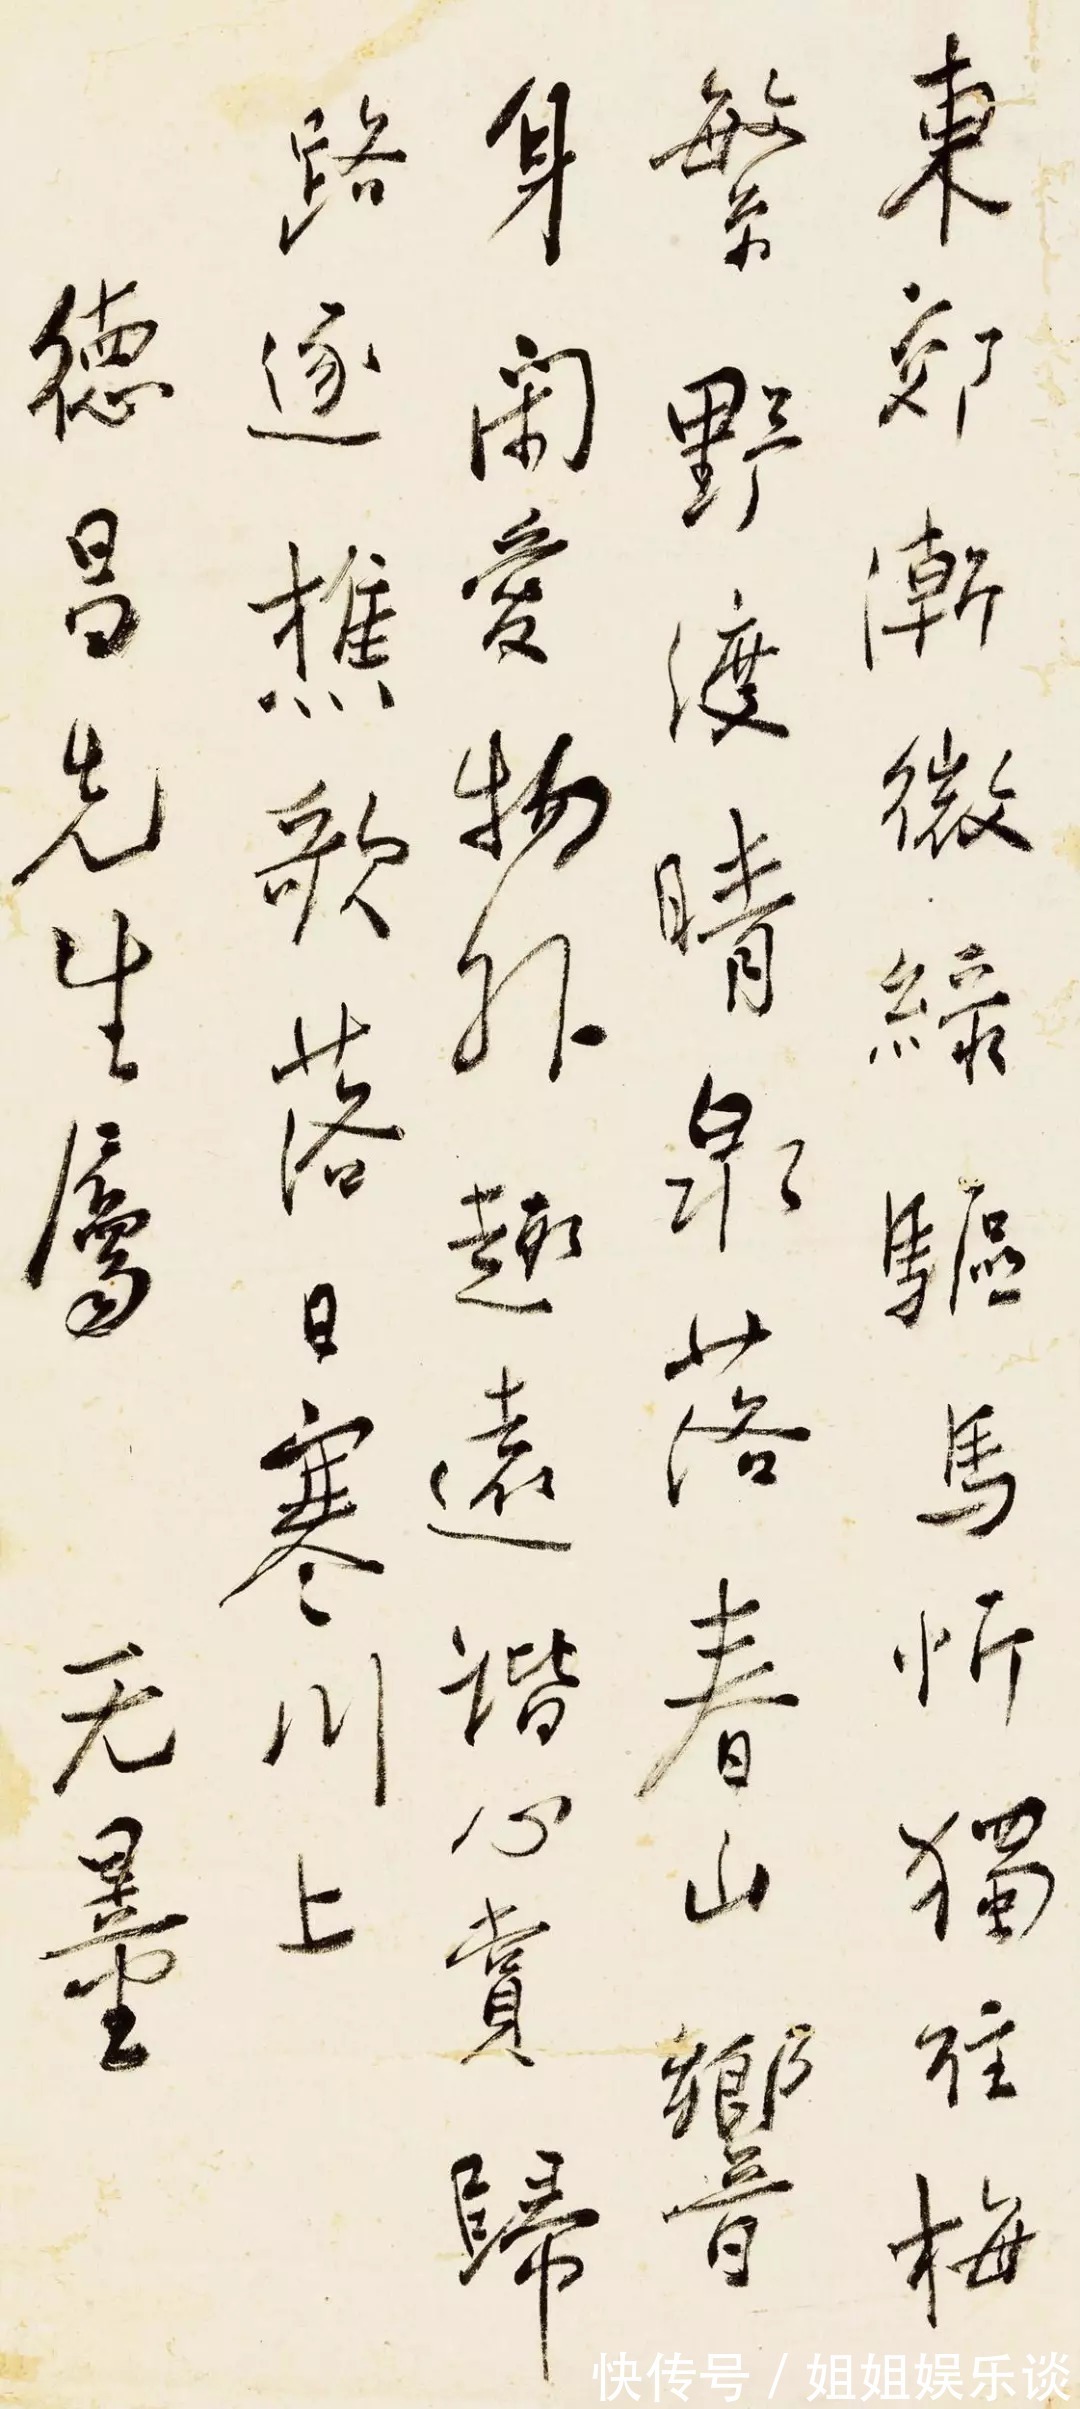 東郊漸微綠驅馬忻獨往梅
繁野渡晴泉落春山響
身閑愛物外趣遠諧心賞歸
路逐樵歌落日寒川上
德昌先生屬
无量
快传号/姐姐娱乐谈